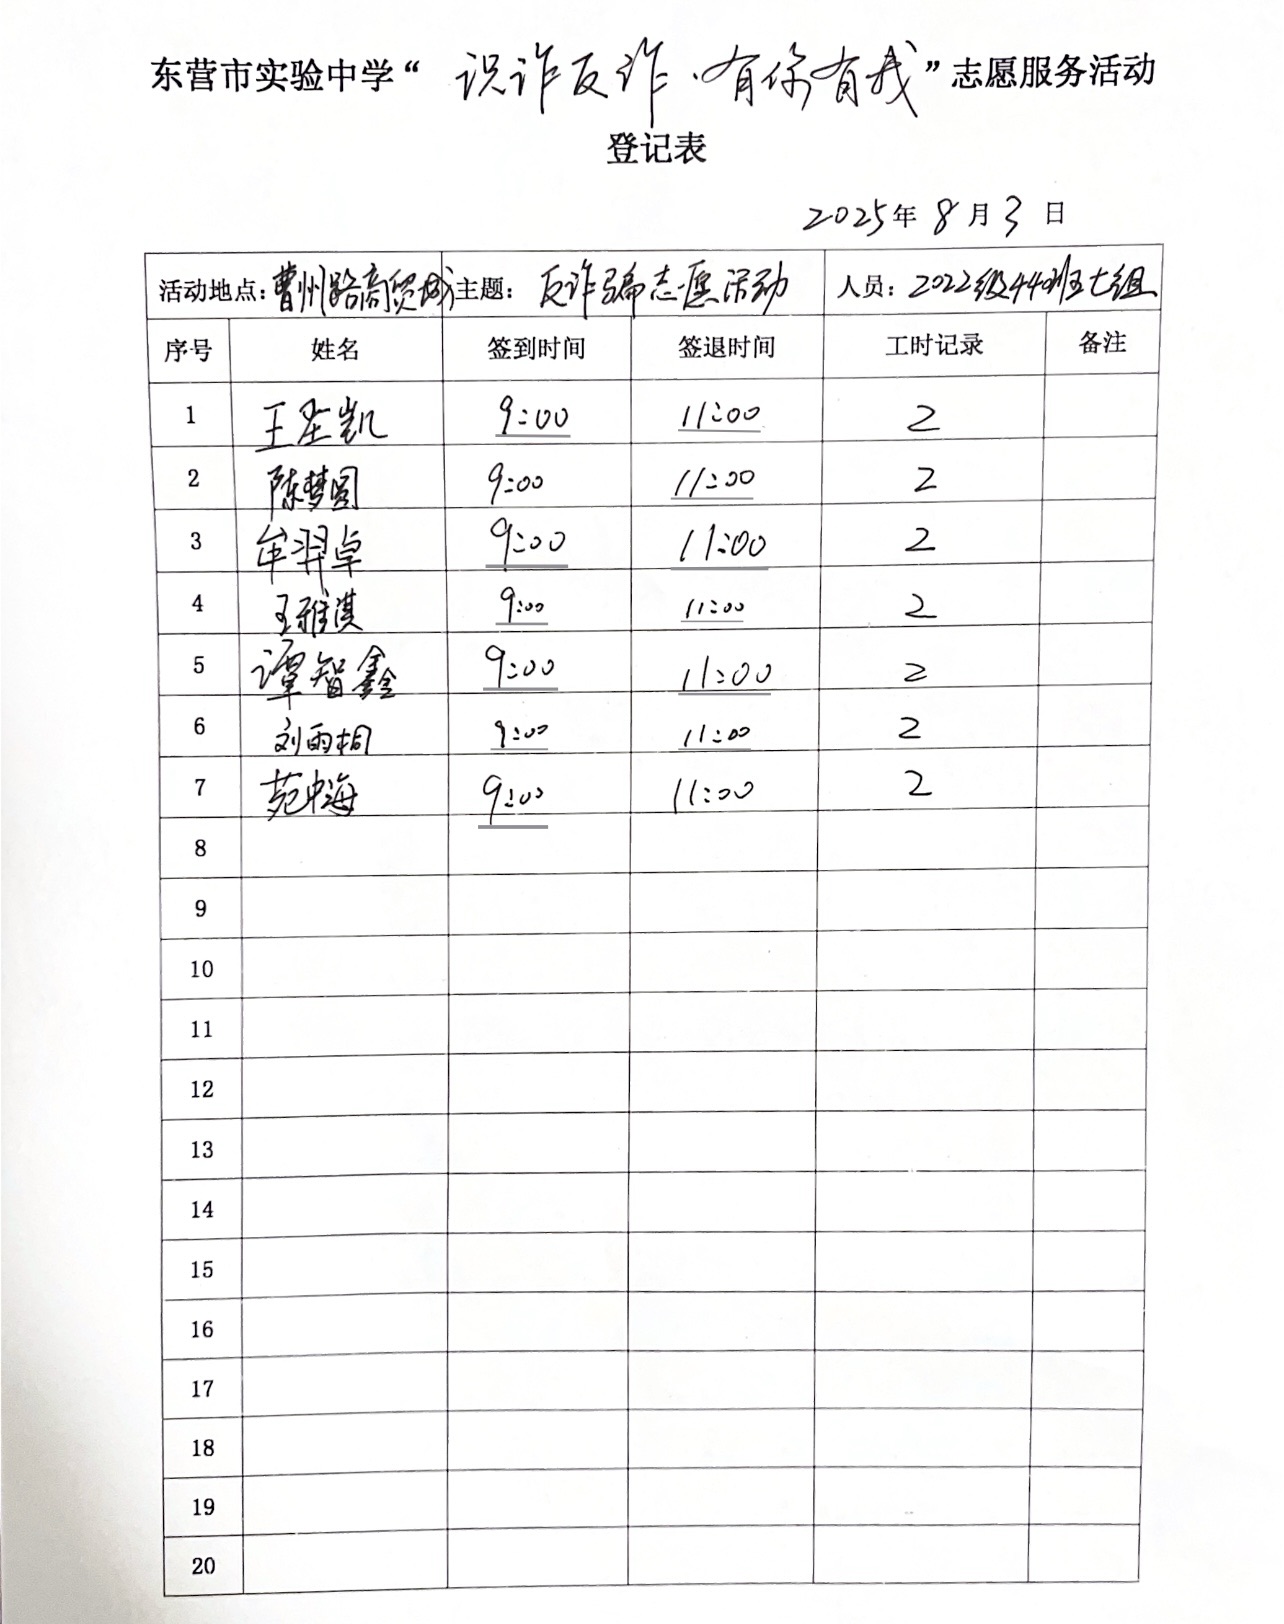 东营市实验中学“识诈反诈·有你有我”志愿服务活动
登记表
2025年 8 月 3 日
活动地点：曹州路商贸城 主题：反诈骗志愿活动 人员：2022级44班七组
序号 姓名 签到时间 签退时间 工时记录 备注
1 王圣凯 9:00 11:00 2
2 陈梦圆 9:00 11:00 2
3 牟羿卓 9:00 11:00 2
4 王雅淇 9:00 11:00 2
5 谭智鑫 9:00 11:00 2
6 刘雨桐 9:00 11:00 2
7 苑中海 9:00 11:00 2
8
9
10
11
12
13
14
15
16
17
18
19
20